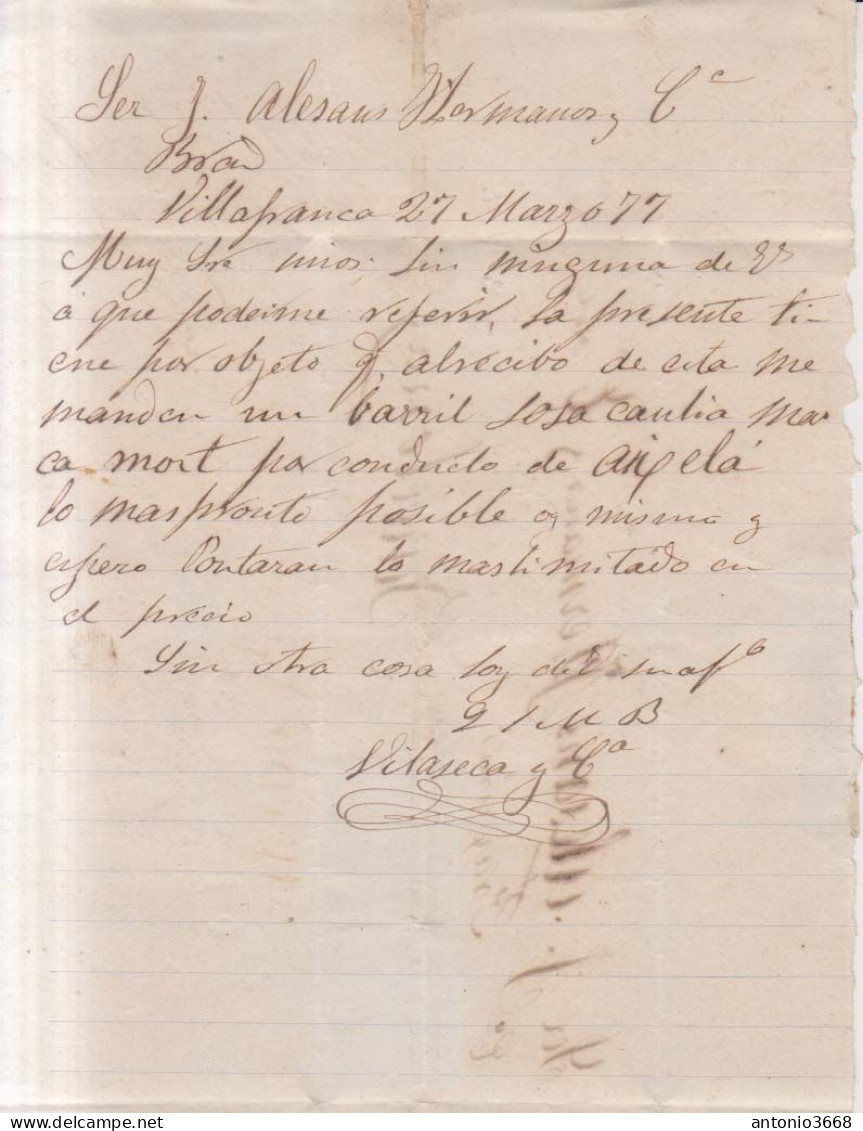 Ser J. Alesans Hermanos y Cª
Bna
Villafranca 27 Marzo 77
Muy Sre mios; Sin ninguna de Vs
á que poderme referir, La presente ti-
ene por objeto q. al recibo de esta me
manden un barril Sosa caustia mar
ca mort por conducto de angela
lo mas pronto posible oy mismo y
espero Contaran lo mas limitado en
el precio
Sin otra cosa soy de V. su afº
Q S M B
Vilaseca y Cª
antonio3668